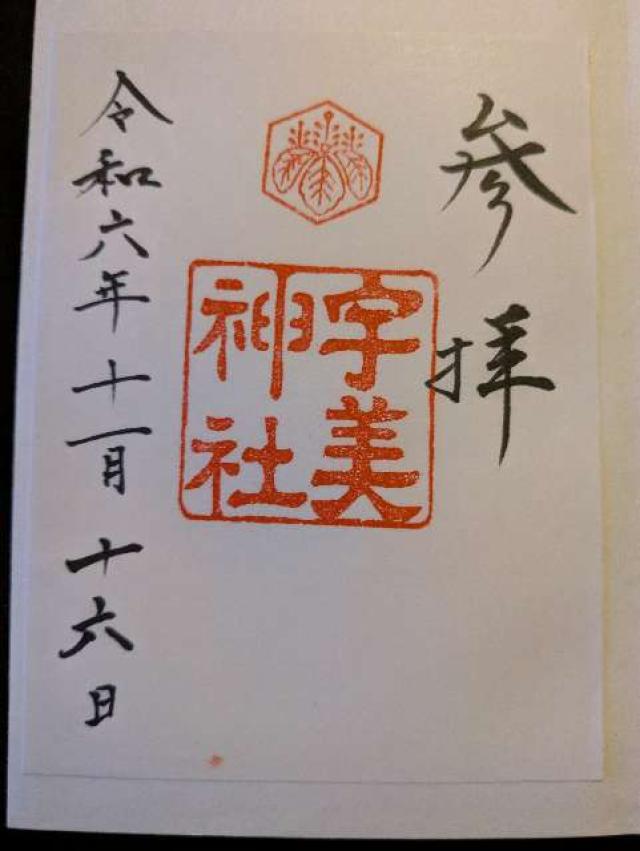 参拝
宇美
神社
令和六年十一月十六日